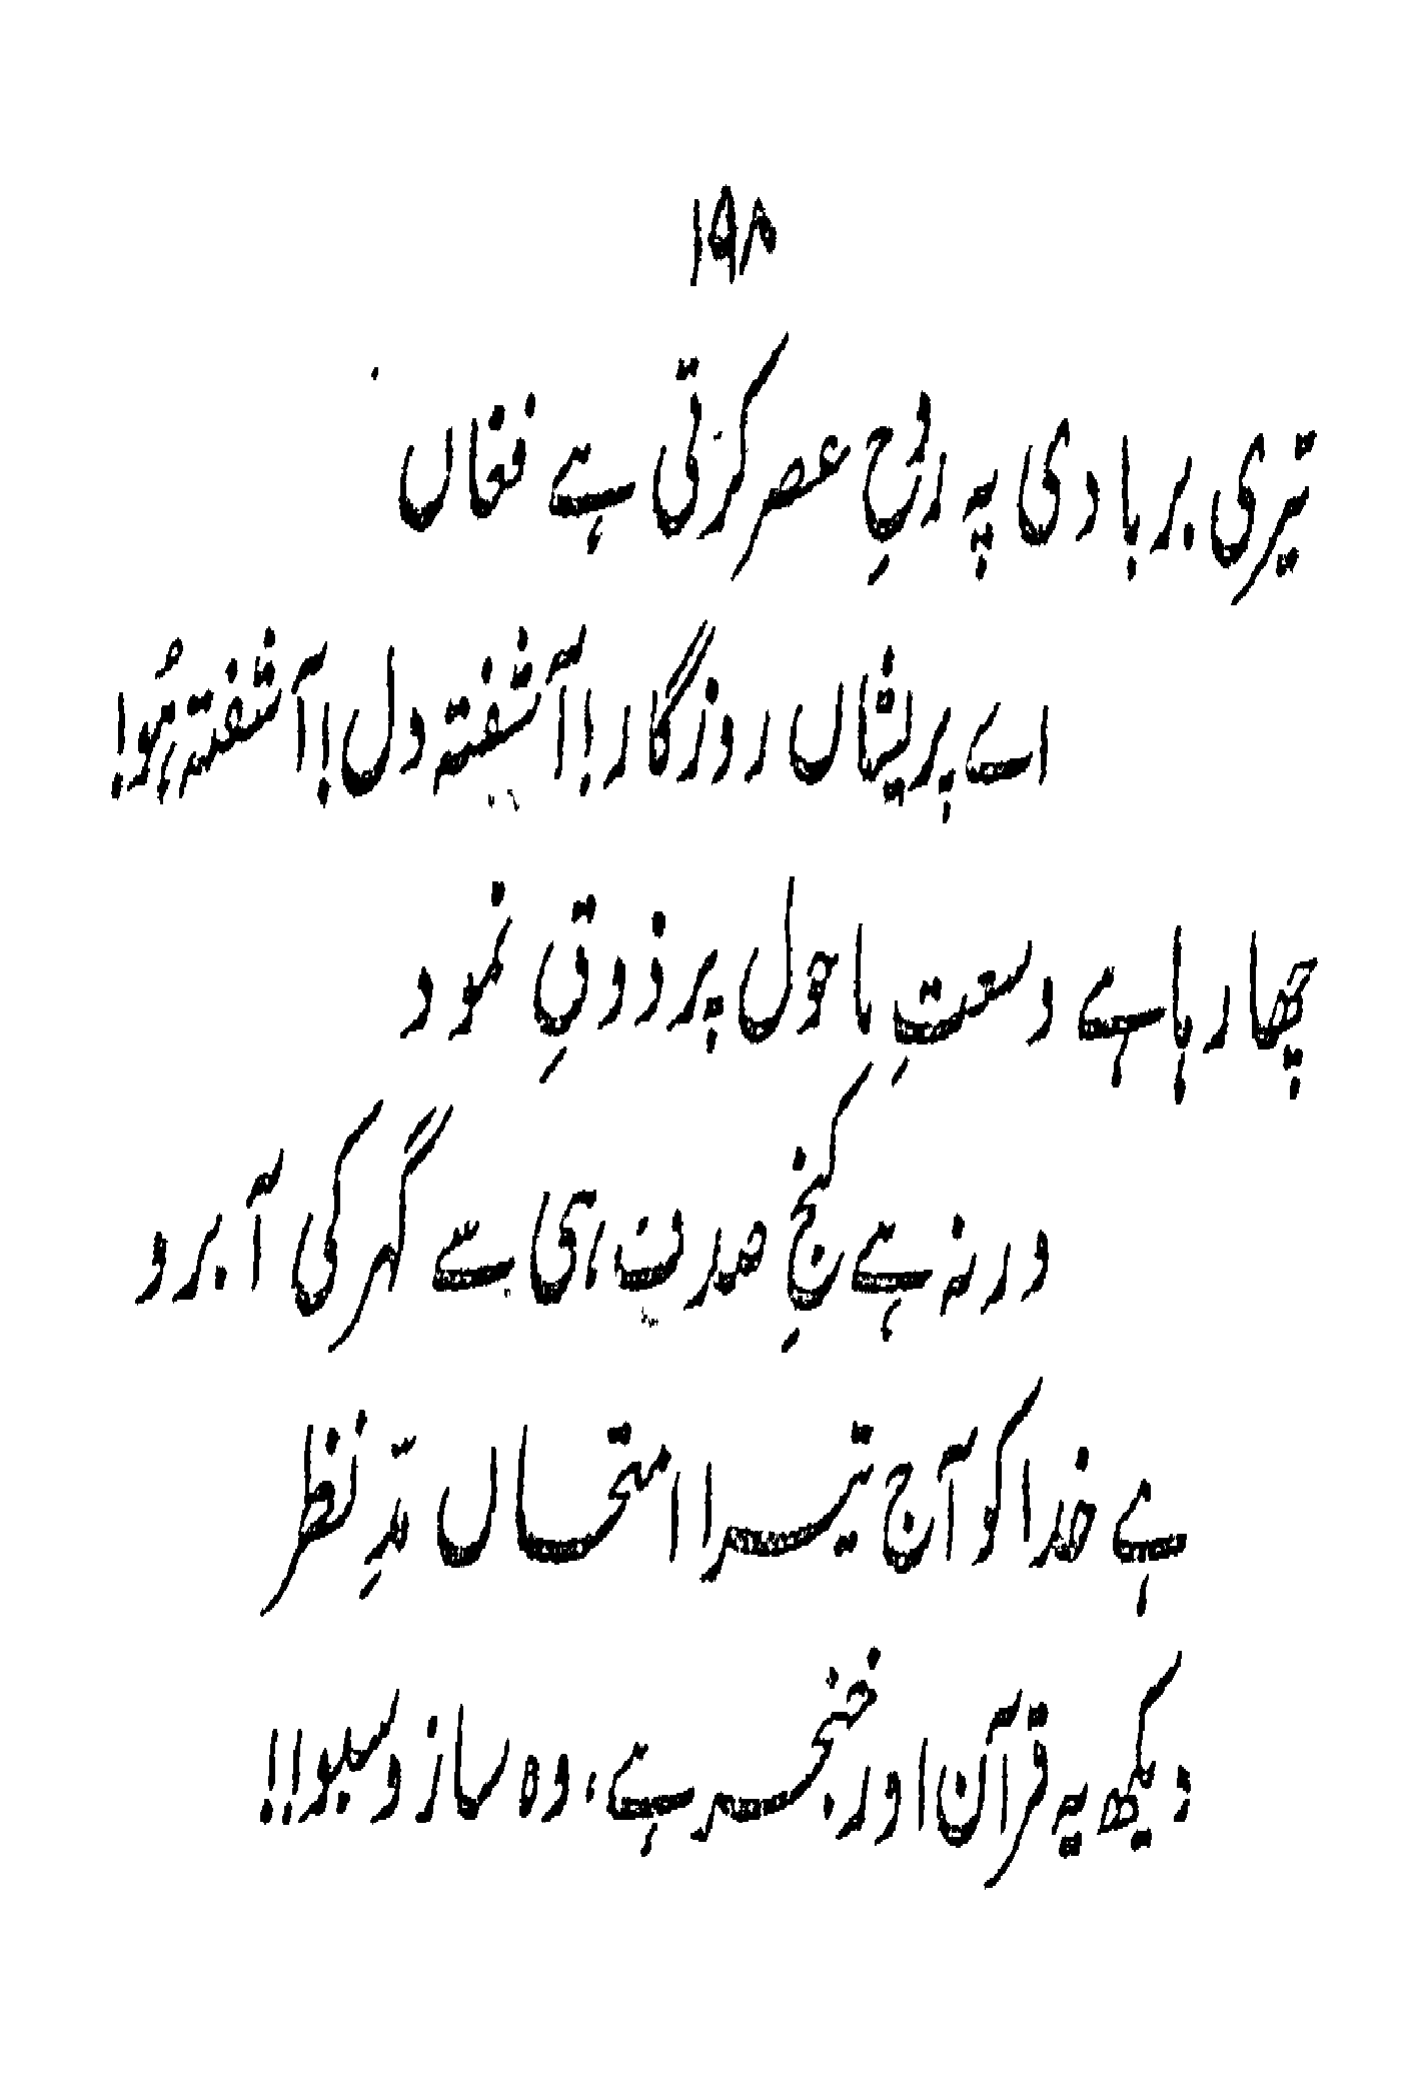 ۱۹۸
تیری بربادی پہ روحِ عصر کرتی ہے فغاں
اے پریشاں روزگار! آشفتہ دل! آشفتہ ہُو!
چھا رہا ہے وسعتِ ماحول پر ذوقِ نمود
ورنہ ہے کنجِ صدف ہی سے گہر کی آبرو
ہے خدا کو آج تیرا امتحاں مدِّ نظر
دیکھ یہ قرآن اور خنجر ہے، وہ ساز و سبو!!